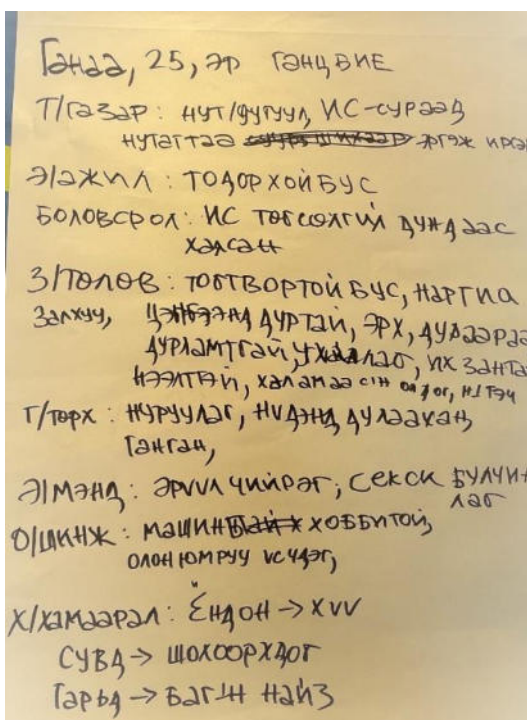 Ганаа, 25, эр ганц бие
Т/газар: нут/дугуул, ИС-сураад
нутагтаа эргэж ирэ
Э/ажил: тодорхой бус
Боловсрол: ИС төгсөлгүй дундаас
халсан
З/төлөв: тогтвортой бус, наргиа
залхуу, цэнгээнд дуртай, эрх, дураараа
дурламтгай, ухаалаг, их занта
нээлттэй, халамаа олдог, нэгтэч
Г/төрх: нуруулаг, нүдэнд дулаахан,
ганган,
Э/мэнд: эрүүл чийрэг, секси булчин
лаг
О/шинж: машин хоббитой,
олон юмруу үсчдэг,
Х/хамаарал: Ёндон → хүү
Сувд → шохоорхдог
Гарьд → багын найз